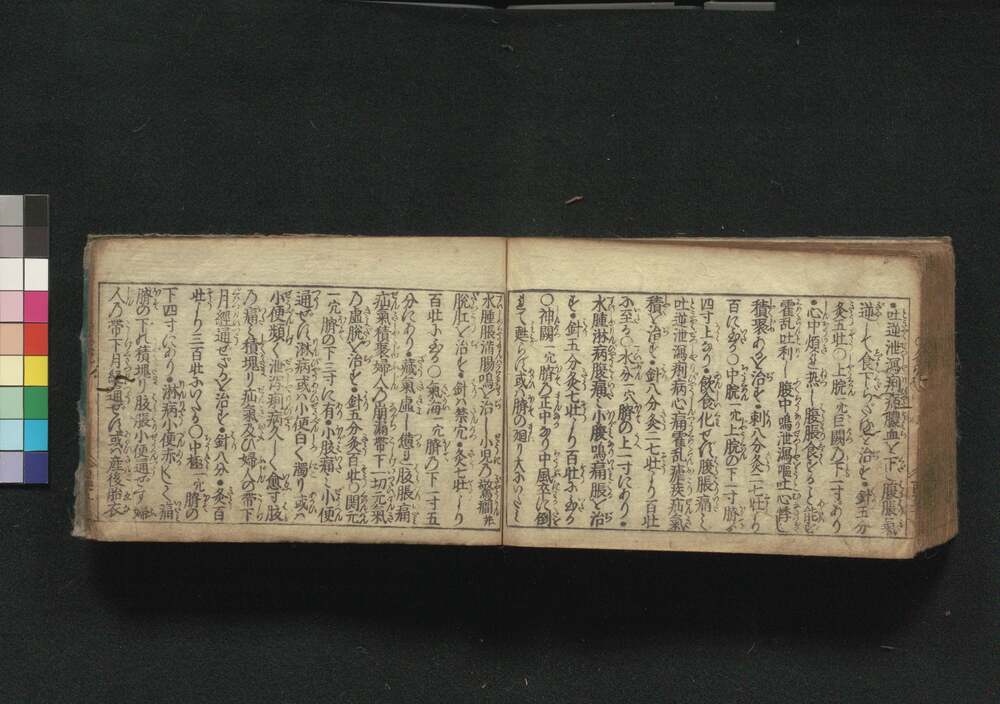 ・吐逆泄瀉痢病膿血を下し腹脹氣
逆して食下らざるを治す・針五分
灸五壮〇上脘一穴巨闕の下一寸にあり
・心中煩熱し腹脹食することを能
霍乱吐利し腹中鳴泄瀉嘔吐心悸し
積聚あるを治す・刺八分灸二七壮より
百に至る〇中脘一穴上脘の下一寸臍の
四寸上にあり・飲食化せず腹脹痛し
吐逆泄瀉痢病心痛霍乱瘧疾疝氣
積を治す・針八分灸二七壮より百壮
に至る〇水分一穴臍の上一寸にあり・
水腫淋病腹痛し小腹鳴痛脹を治
す・針五分灸七壮より百壮に至る
〇神闕一穴臍の正中にあり中風卒に倒
まて甦らず或ハ臍の廻り大にいたミ
水腫脹満腸鳴を治し小児の驚癇并
脱肛を治す・針ハ禁穴・灸七壮より
百壮に至る〇氣海一穴臍の下一寸五
分にあり・蔵氣虚し憊り腹脹痛
疝氣積聚婦人の崩漏帯下一切元氣
の虚脱を治す・針五分灸百壮〇関元
一穴臍の下三寸に有・小腹痛ミ小便
通せす淋病或ハ小便白く濁り或ハ
小便頻く泄瀉痢病久しく愈す腹
の痛ミ積塊り疝氣及び婦人の帯下
月経通せざるを治す・針八分・灸百
壮より三百壮にいたる〇中極一穴臍の
下四寸にあり・淋病小便赤くして痛
臍の下に積塊り腹脹小便通せず婦
人の帯下月経通せす或ハ産後胎衣